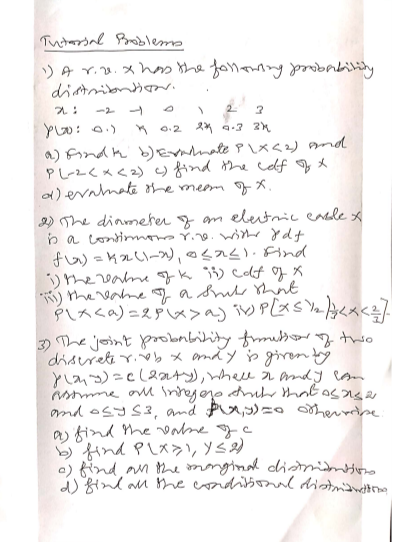 Tutorial Problems
1) A r.v. X has the following probability
distribution.
x: -2 -1 0 1 2 3
p(x): 0.1 k 0.2 2k 0.3 3k
a) Find k b) Evaluate P(X<2) and
P(-2<X<2) c) find the cdf of X
d) evaluate the mean of X.
2) The diameter of an electric cable X
is a continuous r.v. with pdf
f(x) = kx(1-x), 0≤x≤1. Find
i) the value of k ii) cdf of X
iii) the value of a such that
P(X<a) = 2P(X>a) iv) P[X≤1/2 | 1/3<X<2/3]
3) The joint probability function of two
discrete r.v's X and Y is given by
p(x,y) = c(2x+y), where x and y can
assume all integers such that 0≤x≤2
and 0≤y≤3, and p(x,y)=0 otherwise.
a) find the value of c
b) find P(X≥1, Y≤2)
c) find all the marginal distributions
d) find all the conditional distributions